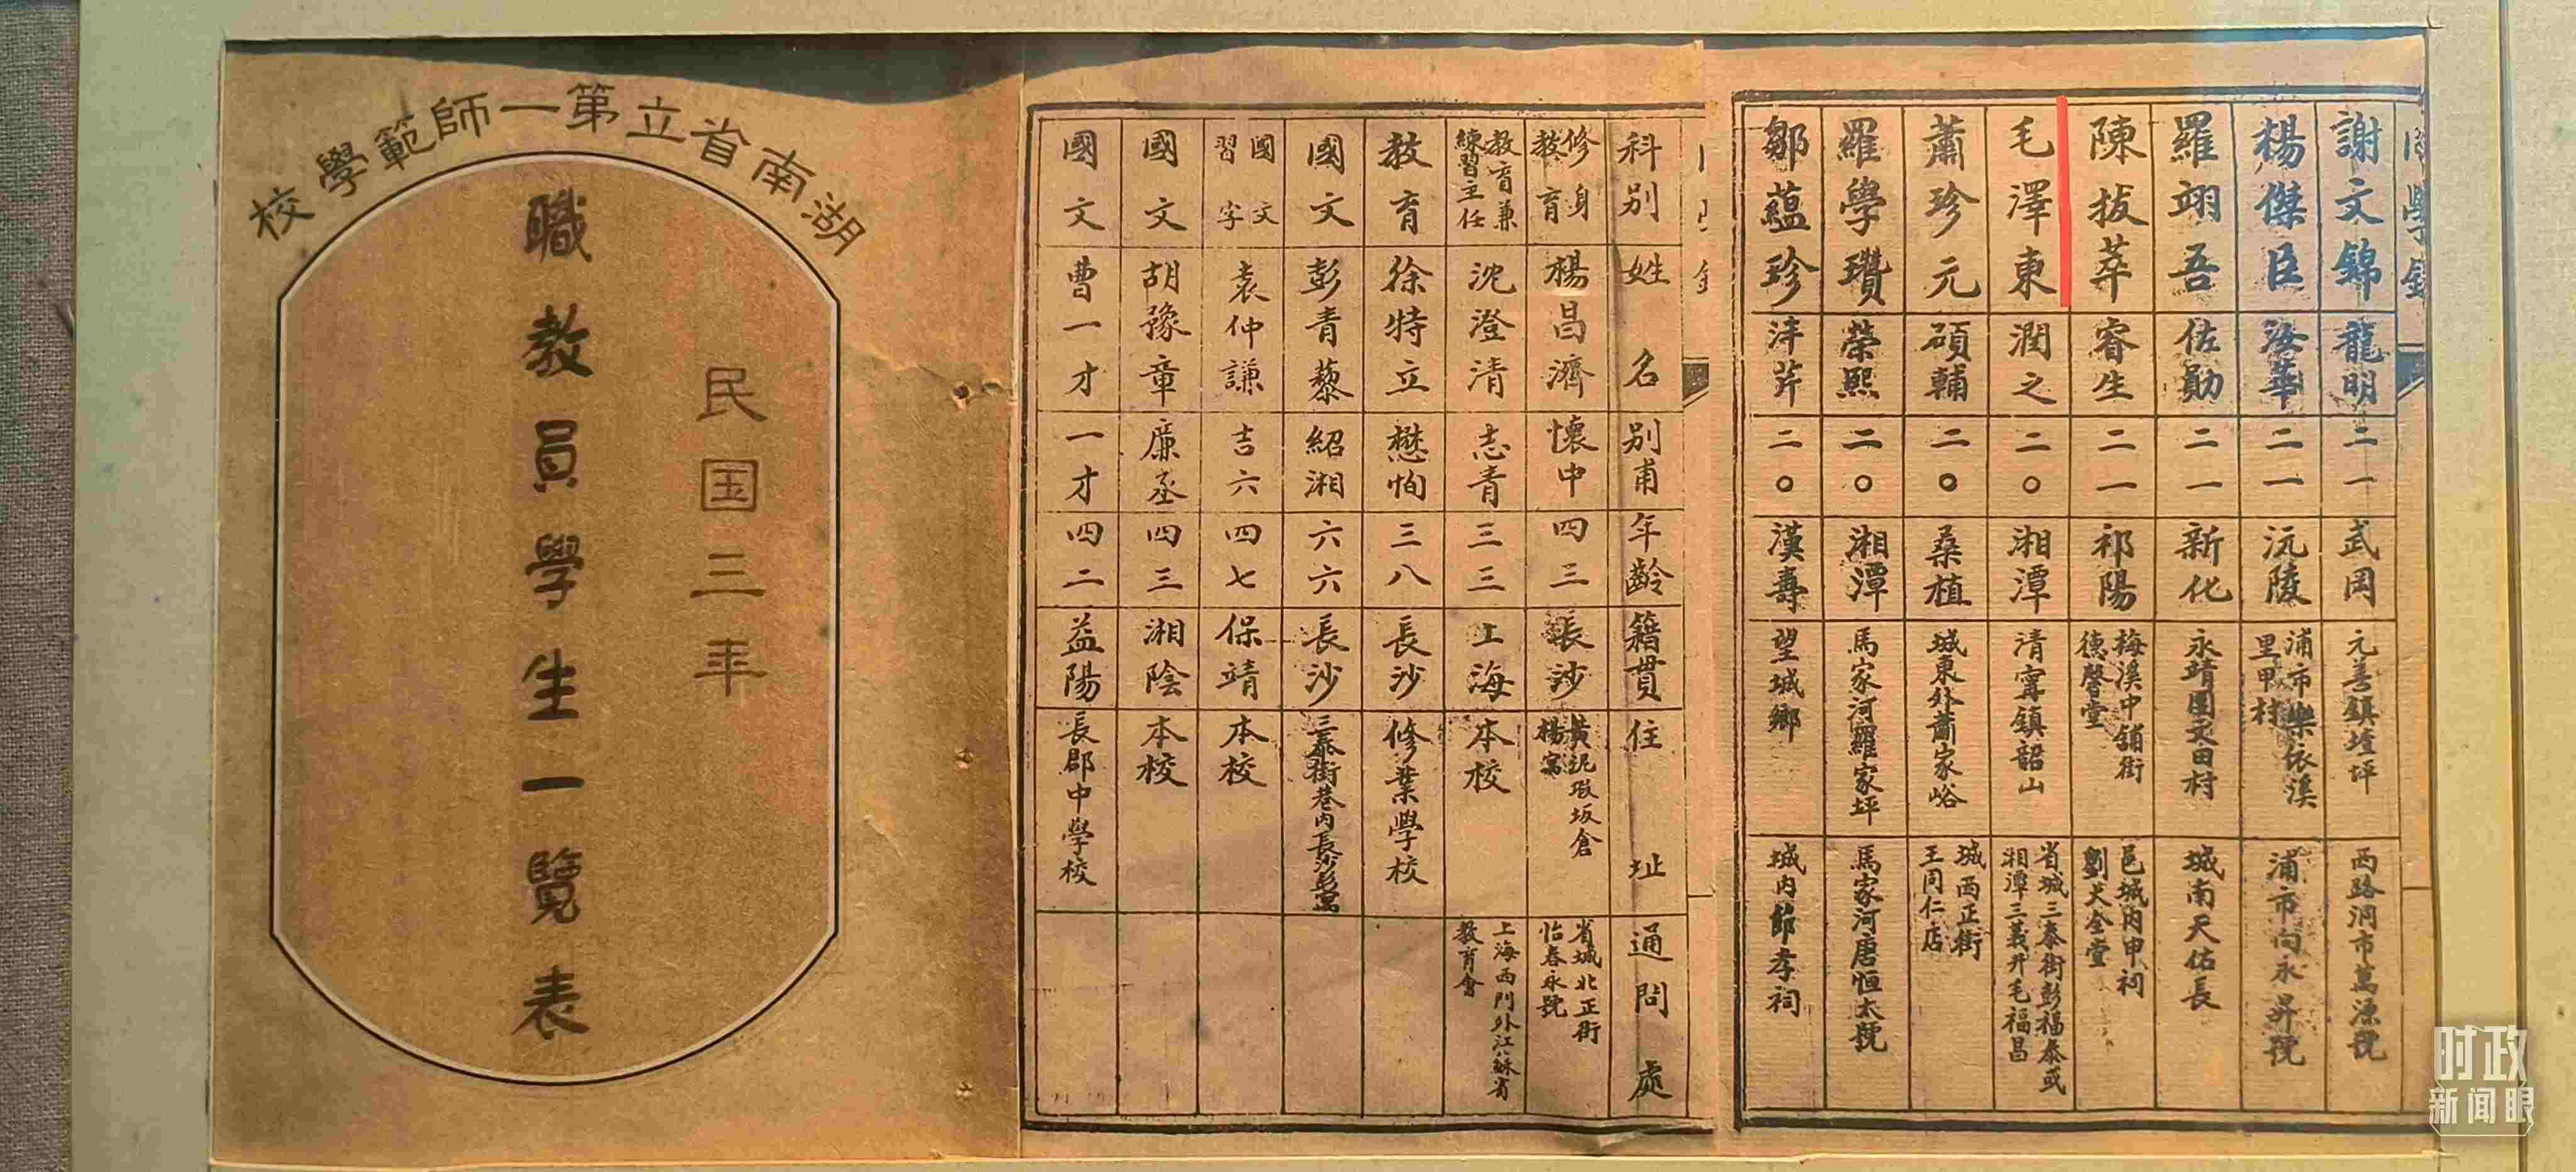 湖南省立第一師範學校
民国三年
職教員學生一覽表
科别 姓名 别甫 年齡 籍貫 住址 通問處
修身教育 楊昌濟 懷中 四三 長沙 黄泥塅坂倉楊寓 省城北正街怡春永號
教育兼練習主任 沈澄清 志青 三三 上海 本校 上海西門外江蘇省教育會
教育 徐特立 懋恂 三八 長沙 修業學校
國文 彭青藜 紹湘 六六 長沙 三泰街巷内長沙彭寓
國文習字 袁仲謙 吉六 四七 保靖 本校
國文 胡豫章 廉丞 四三 湘陰 本校
國文 曹一才 一才 四二 益陽 長郡中學校
謝文錦 龍明 二一 武岡 元善鎮㙇坪 西路洞市萬源號
楊傑臣 海華 二一 沅陵 浦市樂依溪里甲村 浦市向永昇號
羅翊吾 佐勛 二一 新化 永靖團炙田村 城南天佑長
陳拔萃 睿生 二一 祁陽 梅溪中舖街德馨堂 邑城内申祠劉天全堂
毛澤東 潤之 二〇 湘潭 清寗鎮韶山 省城三泰街彭福泰或湘潭三義升毛福昌
蕭珍元 碩輔 二〇 桑植 城東外蕭家峪 城西正街王同仁店
羅學瓚 榮熙 二〇 湘潭 馬家河羅家坪 馬家河唐恒太號
鄒蘊珍 泮芹 二〇 漢壽 望城鄉 城内節孝祠
时政
新闻眼